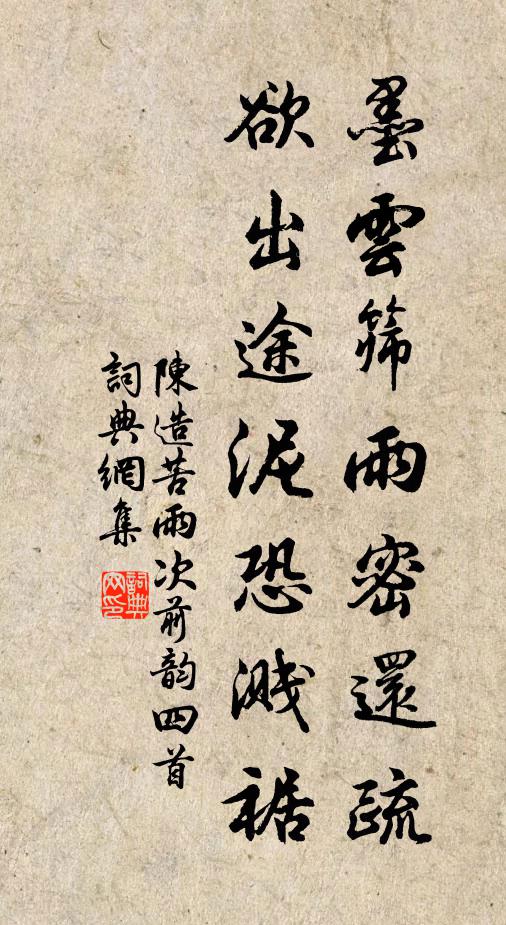 墨雲篩雨密還疏
欲出途泥恐濺裾
陳造苦雨次前韵四首
詞典網集
詞典网印